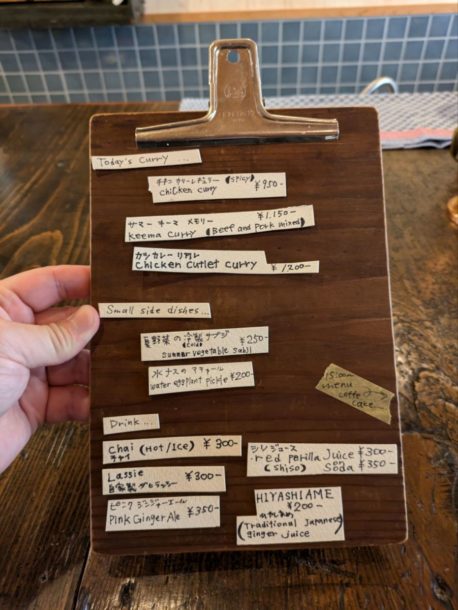 Today's Curry ...
チキンカリー (spicy)
chicken curry ¥950-
サマーキーマ メモリー ¥1.150-
Keema curry (Beef and Pork mixed)
カツカレー
Chicken cutlet curry ¥1200-
Small side dishes...
夏野菜の冷製サブジ ¥250-
(cold)
summer vegetable sabji
水ナスのアチャール
water eggplant pickle ¥200-
15:00~
menu
coffee
cake
Drink....
Chai (Hot/Ice) ¥300-
チャイ
シソジュース
red Perilla Juice ¥300-
(shiso) soda ¥350-
Lassie ¥300-
自家製
ピンクジンジャーエール
Pink Ginger Ale ¥350-
HIYASHIAME
¥200-
ひやしあめ
(Traditional Japanese)
ginger juice